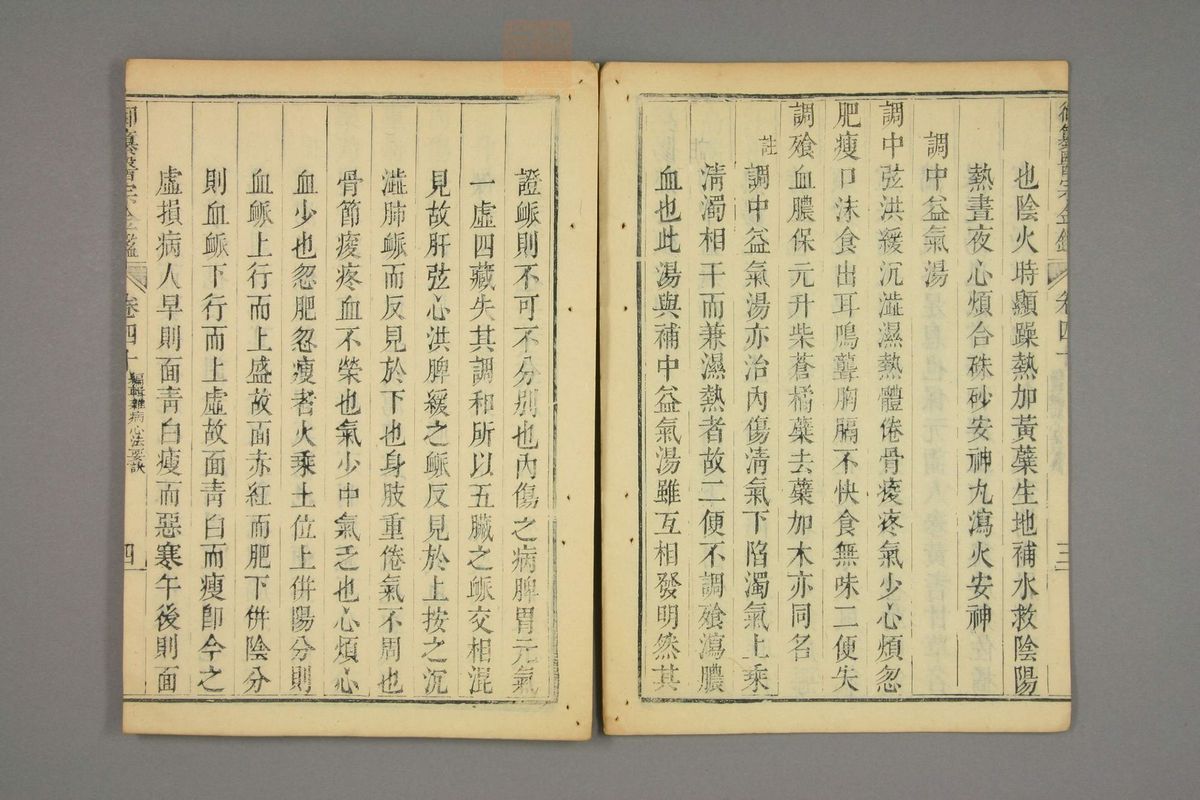 御纂醫宗金鑑 卷四十 三
也陰火時顯躁熱加黃蘗生地補水救陰陽
熱晝夜心煩合硃砂安神丸瀉火安神
調中益氣湯
調中弦洪緩沉澁濕熱體倦骨痠疼氣少心煩忽
肥瘦口沫食出耳鳴聾胸膈不快食無味二便失
調飱血膿保元升柴蒼橘蘗去蘗加木亦同名
註 調中益氣湯亦治內傷淸氣下陷濁氣上乘
淸濁相干而兼濕熱者故二便不調飱瀉膿
血也此湯與補中益氣湯雖互相發明然其
證脈則不可不分別也內傷之病脾胃元氣
一虛四藏失其調和所以五臟之脈交相混
見故肝弦心洪脾緩之脈反見於上按之沉
澁肺脈而反見於下也身肢重倦氣不周也
骨節痠疼血不榮也氣少中氣乏也心煩心
血少也忽肥忽瘦者火乘土位上倂陽分則
血脈上行而上盛故面赤紅而肥下倂陰分
則血脈下行而上虛故面靑白而瘦卽今之
虛損病人早則面靑白瘦而惡寒午後則面
御纂醫宗金鑑 卷四十 編輯雜病心法要訣 四